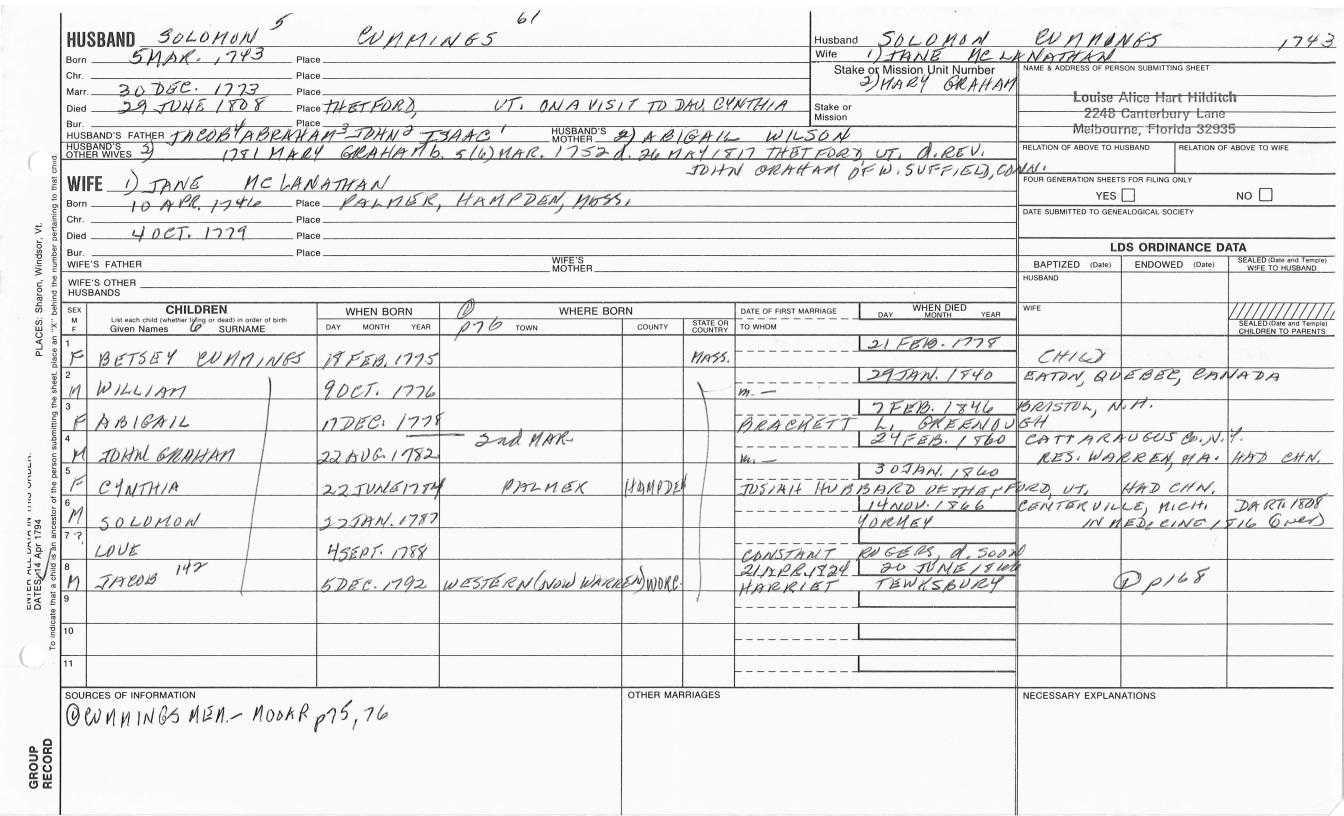 5 61
HUSBAND SOLOMON CUMMINGS
Husband SOLOMON CUMMINGS 1743
Born 5 MAR. 1743 Place
Wife 1) JANE MC LANATHAN
Chr. Place
Stake or Mission Unit Number
2) MARY GRAHAM
NAME & ADDRESS OF PERSON SUBMITTING SHEET
Marr. 30 DEC. 1773 Place
Died 29 JUNE 1808 Place THETFORD, VT. ON A VISIT TO DAU. CYNTHIA
Stake or Mission
Louise Alice Hart Hilditch
2248 Canterbury Lane
Melbourne, Florida 32935
Bur. Place
HUSBAND'S FATHER JACOB4 ABRAHAM3 JOHN2 ISAAC1 HUSBAND'S MOTHER 2) ABIGAIL WILSON
HUSBAND'S OTHER WIVES 2) 1781 MARY GRAHAM b. 5(6) MAR. 1752 d. 26 MAY 1817 THETFORD, VT. d. REV.
JOHN GRAHAM OF W. SUFFIELD, CONN.
RELATION OF ABOVE TO HUSBAND RELATION OF ABOVE TO WIFE
WIFE 1) JANE MC LANATHAN
FOUR GENERATION SHEETS FOR FILING ONLY
YES NO
Born 10 APR. 1746 Place PALMER, HAMPDEN, MASS.
Chr. Place
DATE SUBMITTED TO GENEALOGICAL SOCIETY
Died 4 OCT. 1779 Place
Bur. Place
LDS ORDINANCE DATA
WIFE'S FATHER WIFE'S MOTHER
BAPTIZED (Date) ENDOWED (Date) SEALED (Date and Temple) WIFE TO HUSBAND
WIFE'S OTHER HUSBANDS
HUSBAND
SEX M F
CHILDREN
List each child (whether living or dead) in order of birth
Given Names 6 SURNAME
WHEN BORN
DAY MONTH YEAR
① p76
WHERE BORN
TOWN COUNTY STATE OR COUNTRY
DATE OF FIRST MARRIAGE
TO WHOM
WHEN DIED
DAY MONTH YEAR
WIFE
SEALED (Date and Temple) CHILDREN TO PARENTS
1 21 FEB. 1778
F BETSEY CUMMINGS 18 FEB. 1775 MASS. CHILD
2 29 JAN. 1840 EATON, QUEBEC, CANADA
M WILLIAM 9 OCT. 1776 m. —
3 7 FEB. 1846 BRISTOL, N.H.
F ABIGAIL 17 DEC. 1778 BRACKETT L. GREENOUGH
2nd MAR.
4 24 FEB. 1860 CATTARAUGUS Co. N.Y.
M JOHN GRAHAM 22 AUG. 1782 m. — RES. WARREN, MA. HAD CHN.
5 30 JAN. 1860
F CYNTHIA 22 JUNE 1784 PALMER HAMPDEN JOSIAH HUBBARD OF THETFORD, VT. HAD CHN.
6 14 NOV. 1866 CENTERVILLE, MICH. DART. 1808
M SOLOMON 22 JAN. 1787 YORMEY IN MEDICINE 1816 (over)
7 ?
LOVE 4 SEPT. 1788 CONSTANT ROGERS, d. SOON
8 21 APR. 1824 20 JUNE 1866
M JACOB 142 5 DEC. 1792 WESTERN (NOW WARREN) WORC. HARRIET TEWKSBURY ① p168
9
10
11
SOURCES OF INFORMATION
① CUMMINGS MEM. - MOOAR p75, 76
OTHER MARRIAGES
NECESSARY EXPLANATIONS
GROUP RECORD
ENTER ALL DATA IN THIS ORDER:
DATES: 14 Apr 1794
PLACES: Sharon, Windsor, Vt.
To indicate that a child is an ancestor of the person submitting the sheet, place an "X" behind the number pertaining to that child.